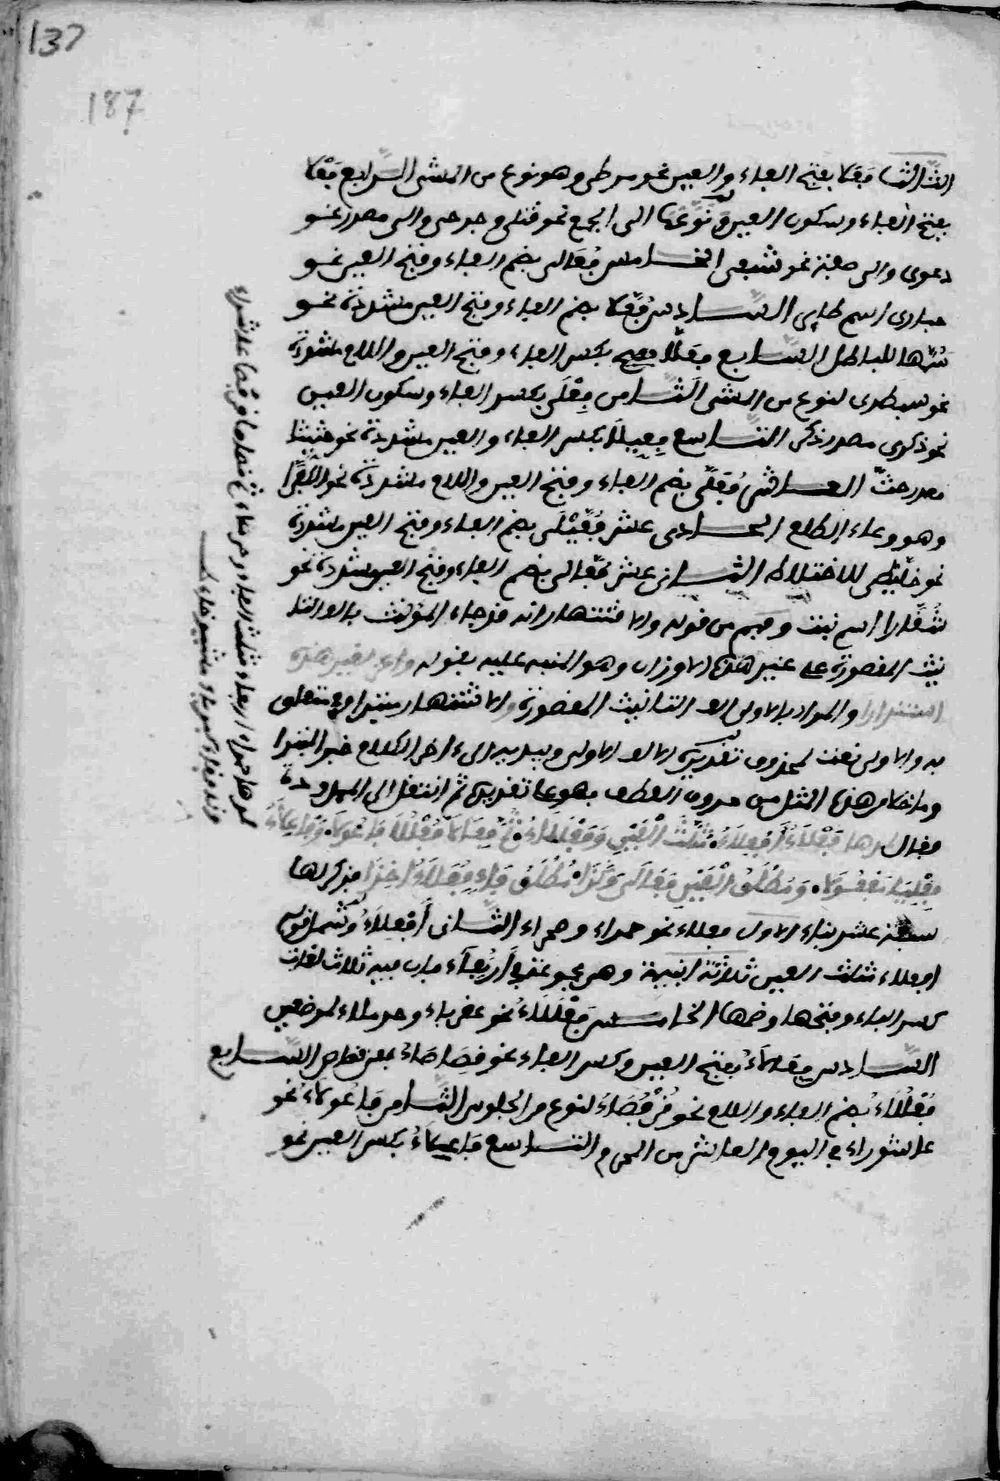 137
187
الثالث فَعَلا بفتح الفاء والعين نحو مرطى وهو نوع من المشي الرابع فَعْلا
بفتح الفاء وسكون العين ونوعها الى الجمع نحو قتلى وجرحى والى مصدر نحو
دعوى والى صفة نحو شبعى الخامس فُعَالى بضم الفاء وفتح العين نحو
حبارى اسم طاير السادس فُعَّلا بضم الفاء وفتح العين مشددة نحو
سُمَّها للباطل السابع فِعَلَّا بكسر الفاء وفتح العين واللام مشددة
نحو سبطرى لنوع من المشي الثامن فِعْلَى بكسر الفاء وسكون العين
نحو ذكرى مصدر ذكر التاسع فِعِّيلَا بكسر الفاء والعين مشددة نحو حثيثا
مصدر حثّ العاشر فُعُلَّى بضم الفاء وفتح العين واللام مشددة نحو الكفرا
وهو وعاء الطلع الحادى عشر فُعَّيْلَى بضم الفاء وفتح العين مشددة
نحو خليطى للاختلاط الثانى عشر فُعَّالى بضم الفاء وفتح العين مشددة نحو
شُقَّارا اسم نبت وفهم من قوله والاشتهار انه قد جاء المؤنث بالف التا
نيث المقصورة على غير هذه الاوزان وهو المنبه عليه بقوله واعز لغير هذه
استندارا والمراد بالاولى الف التانيث المقصورة والاشتهار مبتدا وفي متعلق
به والاولى نعت لمحذوف تقديره الالف الاولى ويبديه الى اخر الكلام خبر المبتدا
وما خلا من هذه المثل من حروف العطف فهو على تقديره ثم انتقل الى الممدودة
فقال لمدها فَعْلَاءُ أَفْعِلَاءُ مثلث الْعَيْنِ وَفَعْلَلَاءُ ثُمَّ فِعَالَا فُعْلُلَا فَاعُولَا وَفَاعِلَاءُ
فِعْلِيَا مَفْعُولَا وَمُطْلَقُ الْعَيْنِ فَعَالَى وَكَذَا مُطْلَقُ فَاءٍ فُعَلَاءُ اُخِذَا فذكر لها
سبعة عشر بناء الاول فعلاء نحو حمراء وصحراء الثانى أَفْعِلَاءُ وشمل قوله
افعلاء مثلث العين ثلاثة ابنية وهى مجموعة في أَرْبعاء فان فيه ثلاث لغات
كسر الباء وفتحها وضمها الخامس فَعْلَلَاءُ نحو عقرباء وحرملاء لموضعين
السادس فِعَالَاءُ بفتح العين وكسر الفاء نحو قصاصاءُ بمعنى قصاص السابع
فُعْلُلَاءُ بضم الفاء واللام نحو قُرْفُصَاءَ لنوع من الجلوس الثامن فَاعُولَاءُ نحو
عاشوراء في اليوم العاشر من المحرم التاسع فَاعِلَاءُ بكسر العين نحو